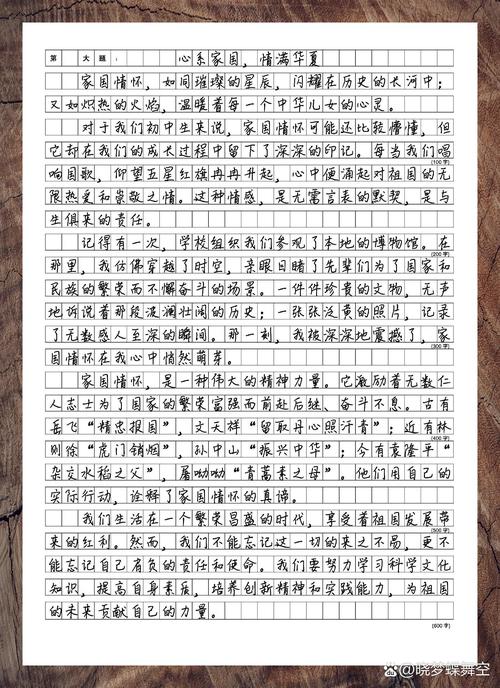 第 大题： 心系家国，情满华夏
家国情怀，如同璀璨的星辰，闪耀在历史的长河中；
又如炽热的火焰，温暖着每一个中华儿女的心灵。
对于我们初中生来说，家国情怀可能还比较懵懂，但
它却在我们的成长过程中留下了深深的印记。每当我们唱
(100字)
响国歌，仰望五星红旗冉冉升起，心中便涌起对祖国的无
限热爱和崇敬之情。这种情感，是无需言表的默契，是与
生俱来的责任。
记得有一次，学校组织我们参观了本地的博物馆。在
(200字)
那里，我仿佛穿越了时空，亲眼目睹了先辈们为了国家和
民族的繁荣而不懈奋斗的场景。一件件珍贵的文物，无声
地诉说着那段波澜壮阔的历史；一张张泛黄的照片，记录
了无数感人至深的瞬间。那一刻，我被深深地震撼了，家
(300字)
国情怀在我心中悄然萌芽。
家国情怀，是一种伟大的精神力量。它激励着无数仁
人志士为了国家的繁荣富强而前赴后继、奋斗不息。古有
岳飞“精忠报国”，文天祥“留取丹心照汗青”；近有林
(400字)
则徐“虎门销烟”，孙中山“振兴中华”；今有袁隆平“
杂交水稻之父”，屠呦呦“青蒿素之母”。他们用自己的
实际行动，诠释了家国情怀的真谛。
我们生活在一个繁荣昌盛的时代，享受着祖国发展带
(500字)
来的红利。然而，我们不能忘记这一切的来之不易，更不
能忘记自己肩负的责任和使命。我们要努力学习科学文化
知识，提高自身素质，培养创新精神和实践能力，为祖国
的未来贡献自己的力量。
(600字)
@晓梦蝶舞空